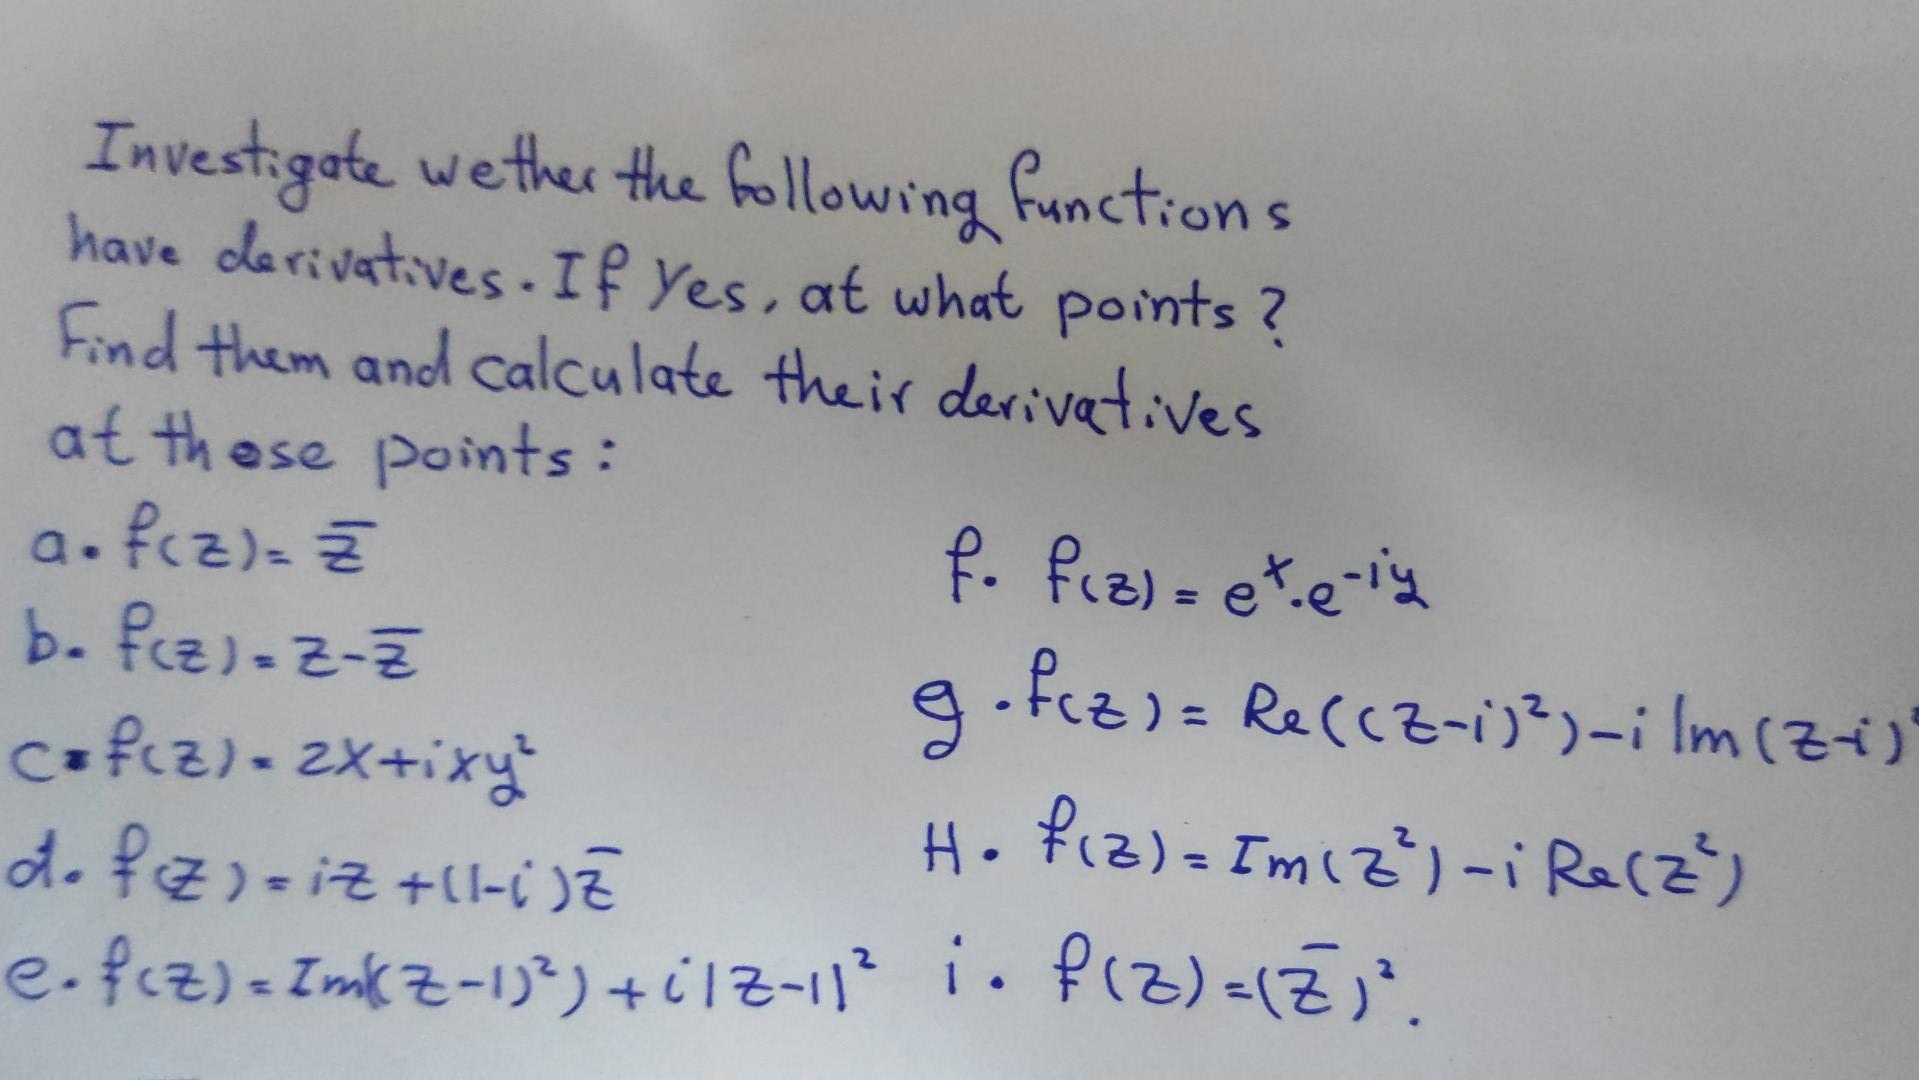 Investigate wether the following functions
have derivatives. If Yes, at what points?
Find them and calculate their derivatives
at those points:
a. f(z) = z̅
b. f(z) = z - z̅
c. f(z) = 2x + ixy²
d. f(z) = iz + (1-i)z̅
e. f(z) = Im((z-1)²) + i|z-1|²
f. f(z) = eˣ.e⁻ⁱʸ
g. f(z) = Re((z-i)²) - i Im(z-i)
H. f(z) = Im(z²) - i Re(z²)
i. f(z) = (z̅)².